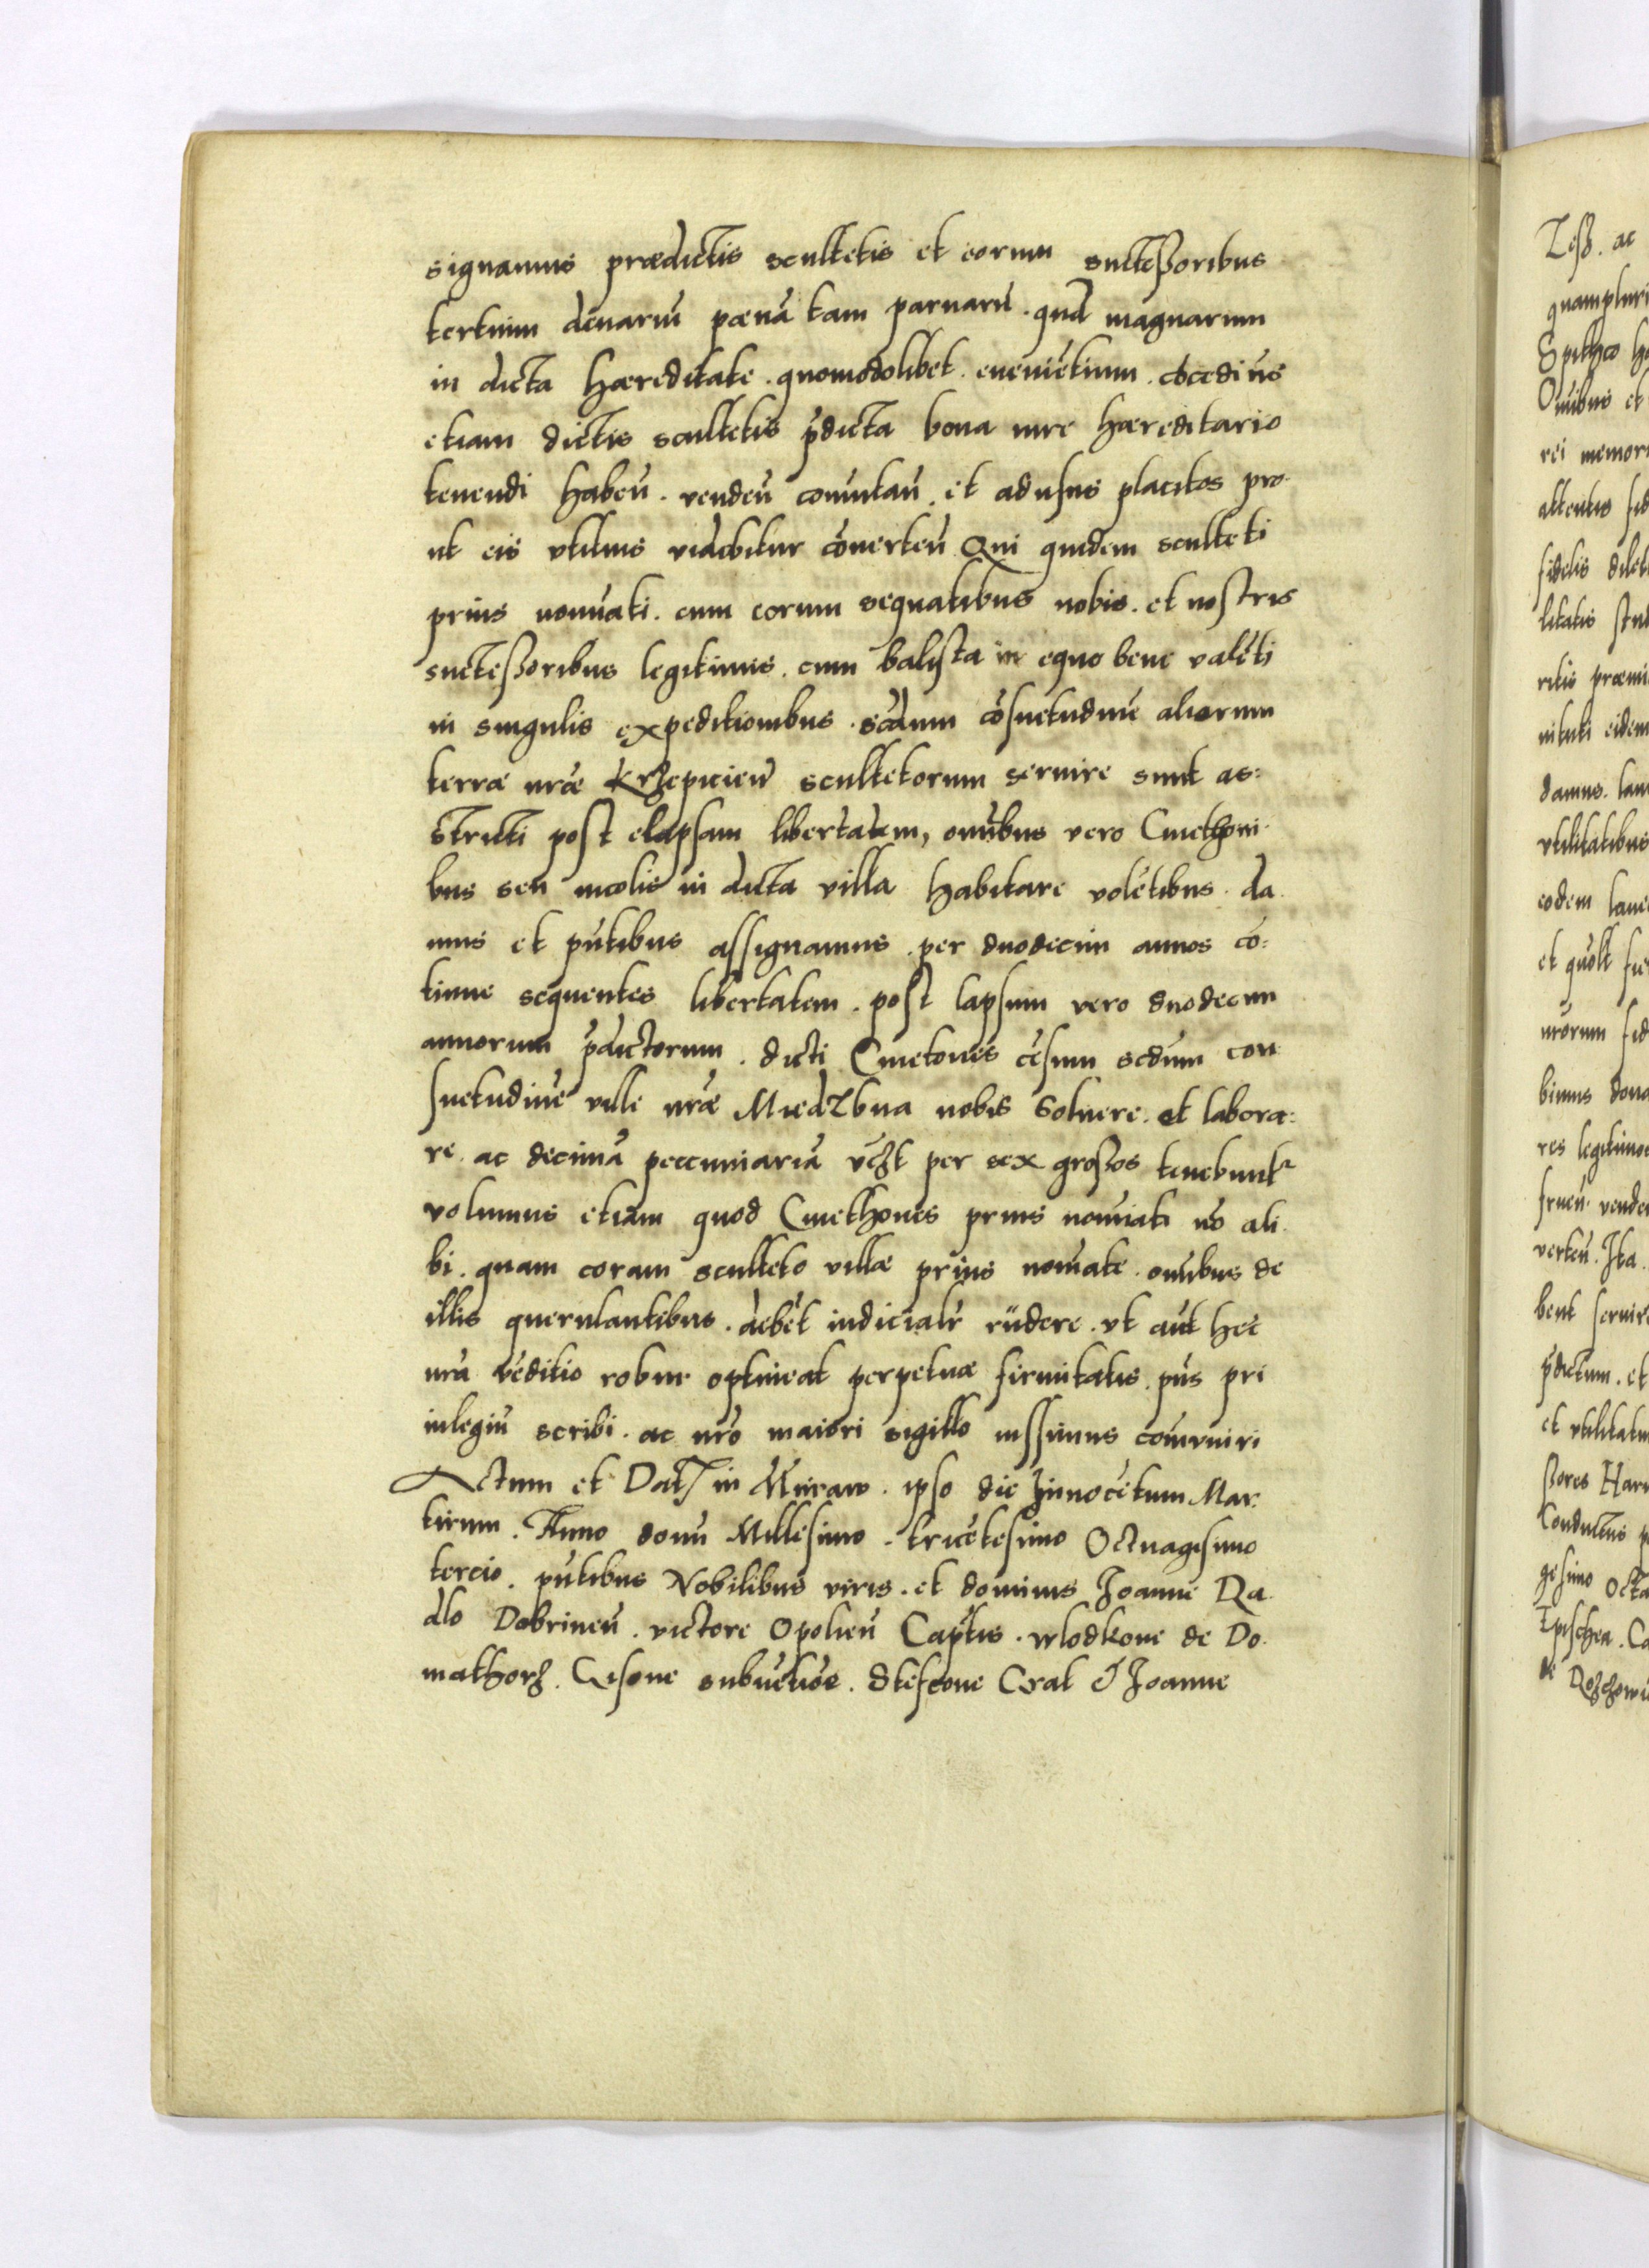 signamus prædictis scultetis et eorum succeßoribus
tertium denariũ pœnã tam paruarũ. quã magnarum
in dicta hæreditate. quomodolibet. eueniẽtium. cõcedim̃s
etiam dictis scultetis p̃dicta bona iure hæreditario
tenendi habeñ. vendeñ comutañ. et ad usus placitos pro
ut eis vtilius videbitur cõuerteñ Qui quidem sculteti
prius nomĩati. cum eorum sequatibus nobis. et nostris
succeßoribus legitimis. cum balista in equo bene valẽti
in singulis expeditionibus. scdum cõsuetudinẽ aliorum
terræ nræ Krzepicieñ scultetorum seruire sunt as:
stricti post elapsam libertatem, omĩbus vero Cmethoni
bus seu incolis in dicta villa habitare volẽtibus. da
mus et pñtibus assignamus. per duodecim annos cõ:
tinue sequentes libertatem. post lapsum vero duodecim
annorum p̃dictorum. dicti Cmetones cẽsum scdum con
suetudinẽ ville nr̃æ Miedzbna nobis soluere. et labora:
re. ac decimã peccuniariã vz̃lt per sex großos tenebuntr
volumus etiam quod Cmethones prius nomĩati nõ ali
bi. quam coram sculteto villæ prius nomĩate. omĩbus de
illis querulantibus. debẽt iudicialr̃ rñdere. vt aũt hec
nr̃a vẽditio robur optineat perpetuæ firmitatis. pñs pri
uilegiũ scribi. ac nr̃o maiori sigillo iussimus comuniri
Actum et Dat̃ in Miraw. ipso die Jnnocẽtum Mar
tirum. Anno domĩ Millesimo. tricẽtesimo Octuagesimo
tercio. pñtibus Nobilibus viris. et dominis Joanne Ra
dlo Dobrineñ. victore Opolieñ Captis. wlodkone de Do
mathorz. Cisone subuẽtiõe. Stefcone Cral & Joanne

Zeß. ac
quampluri
Spithco
Omĩbus et
rei memor
attentis
fidelis
litatis
ritis
nituti eidem
damus.
vtilitatibus
eodem
et
nr̃orum
binus dona
res legitimos
frueñ. vende
verteñ. Ita
bent seruire
p̃dictum. et
et vtilitatum
ßores
Conductus
gesimo octa
de